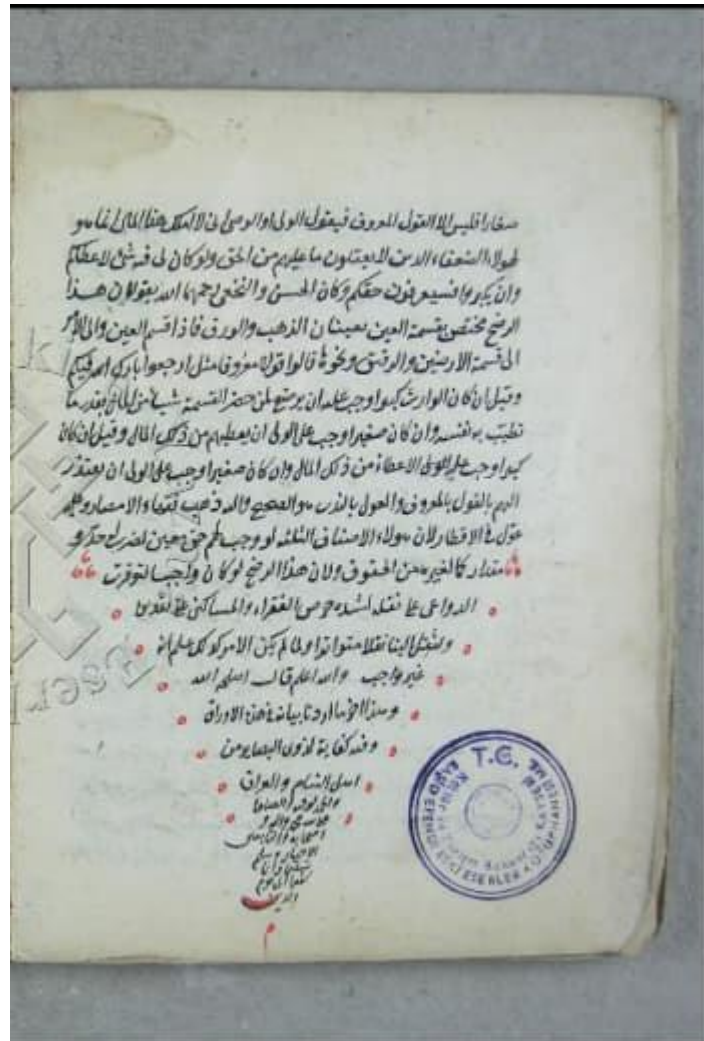 صغارا فليس الا القول المعروف فيقول الولى او الوصى انى لا املك هذا المال انما هو
لهؤلاء الضعفاء الذين لا يعقلون ما عليهم من الحق ولو كان لى فيه شئ لاعطيتكم
وان يكبروا فسيعرفون حقكم وكان الحسن والنخعى رحمهما الله يقولان هذا
الرضخ مختص بقسمة العين يعنيان الذهب والورق فاذا قسم العين وال الامر
الى قسمة الارضين والرقيق ونحوها قالوا قولا معروفا مثل ارجعوا بارك الله فيكم
وقيل ان كان الوارث كبيرا وجب عليه ان يرضخ لمن حضر القسمة شيأ من المال بقدر ما
تطيب به نفسه وان كان صغيرا وجب على الولى ان يعطيهم من ذلك المال وقيل ان كان
كبيرا وجب عليه الاعطاء من ذلك المال وان كان صغيرا وجب على الولى ان يعتذر
اليهم بالقول بالمعروف والعول بالندب هو الصحيح واليه ذهب فقهاء الامصار وعليه
عول فى الاقطار لان هؤلاء الاصناف الثلثة لو وجب لهم حق معين
مقدار كالغيره من الحقوق ولان هذا الرضخ لو كان واجبا لتوفرت
الدواعى على نقله لشدة حرص الفقراء والمساكين على
ولنقل الينا نقلا متواترا ولما لم يكن الامر كذلك علم انه
غير واجب والله اعلم قال اصلحه الله
وهذا آخر ما اردنا بيانه فى هذه الاوراق
وفيه كفاية لذوى البصاير من
اهل الشام والعراق
T.C.